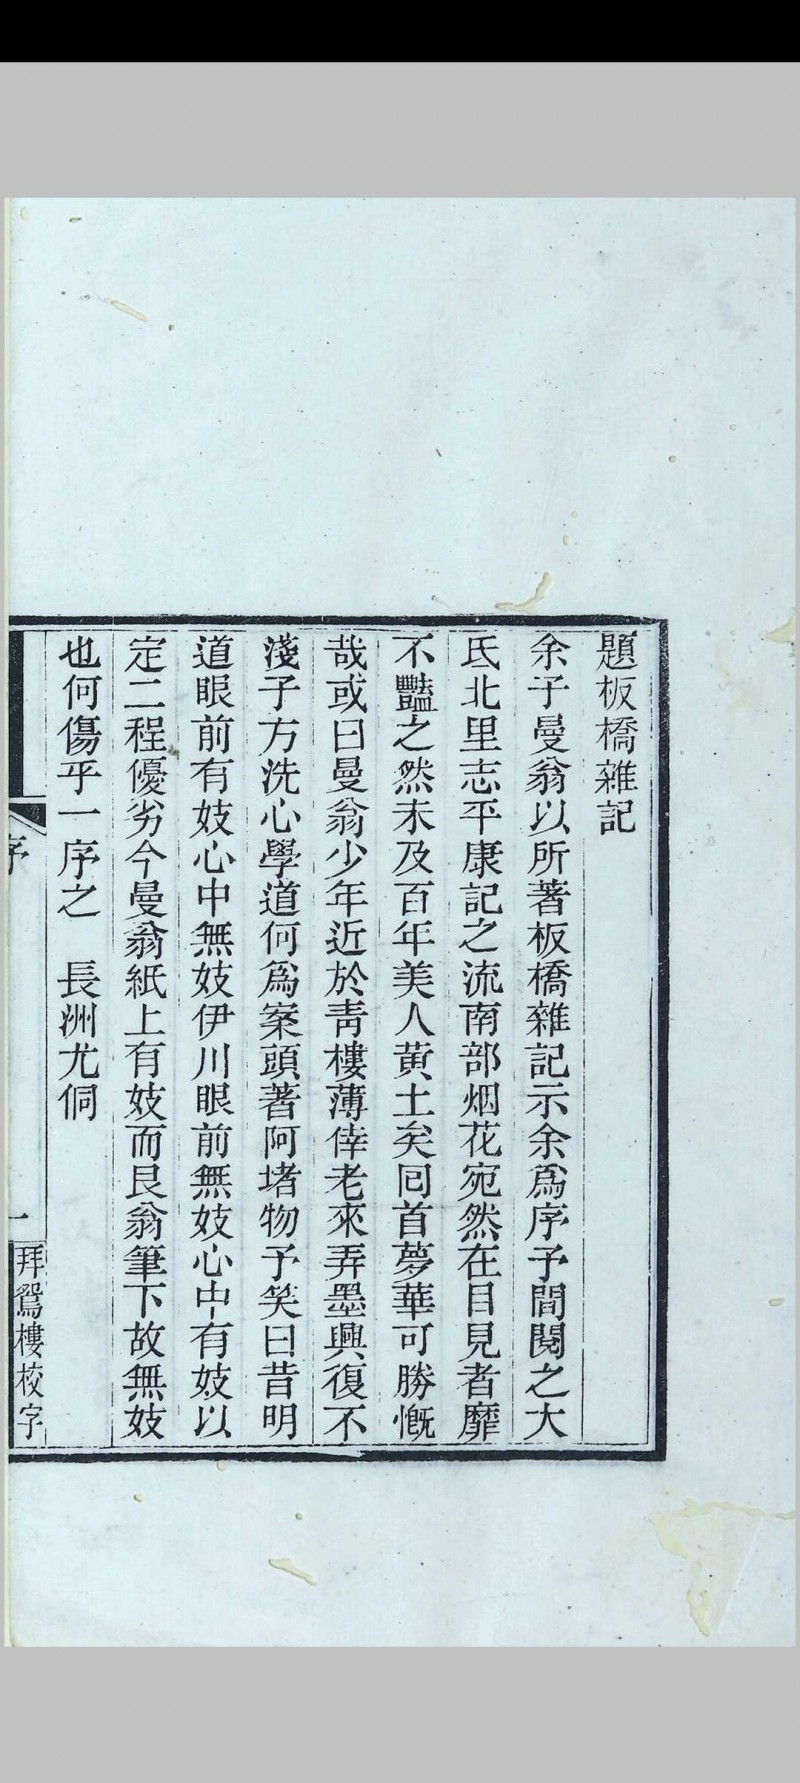 題板橋雜記
余子曼翁以所著板橋雜記示余爲序予間閱之大
氐北里志平康記之流南部烟花宛然在目見者靡
不豔之然未及百年美人黄土矣囘首夢華可勝慨
哉或曰曼翁少年近於青樓薄倖老來弄墨興復不
淺子方洗心學道何爲案頭著阿堵物予笑曰昔明
道眼前有妓心中無妓伊川眼前無妓心中有妓以
定二程優劣今曼翁紙上有妓而艮翁筆下故無妓
也何傷乎一序之　長洲尤侗
序
一
拜鴛樓校字